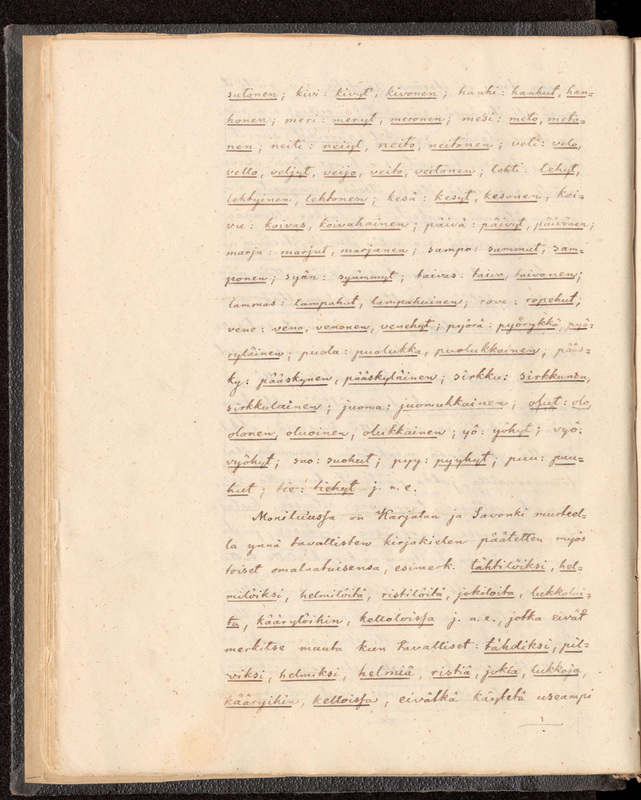 sutonen; kivi: kivyt, kivonen; hanhi: hanhut, han=
honen; meri: meryt, meronen; mesi: meto, meto-
nen; neiti: neiyt, neito, neitonen; veli: velo,
vello, veljyt, veijo, veito, veitonen; lehti: lehyt,
lehtyinen, lehtonen; kesä: kesyt, kesonen, koi-
vu: koivas, koivahainen; päivä: päivyt, päivönen;
marja: marjut, marjanen; sampo: sammut, sam-
ponen; syän: syämmyt; taivas: taivo, taivonen;
lammas: lampahut, lampahainen; rove: ropehut;
vene: veno, venonen, venehyt; pyörä: pyörykkä, pyö=
ryläinen; puola: puolukka, puolukkainen; pääs-
ky: pääskynen, pääskyläinen; sirkku: sirkkunen,
sirkkulainen; juoma: juomukkainen; olut: olo,
olonen, oluoinen, olukkainen; yö: yöhyt; vyö:
vyöhyt; suo: suohut; pyy: pyyhyt; puu: puu-
hut; tie: tiehyt j. n. e.
Moniluussa on Karjalan ja Savonki murteel-
la ynnä tavallisten kirjakielen päätetten myös
toiset omalaatuisensa, esimerk. tähtilöiksi, hel-
milöiksi, helmilöitä, ristilöitä, jokiloita, lukkoloi-
ta, käärylöihin, kelloloissa j. n. e., jotka eivät
merkitse muuta kun tavalliset: tähdiksi, pil-
viksi, helmiksi, helmiä, ristiä, jokia, lukkoja,
kääryihin, kelloissa, eivätkä käytetä useampi